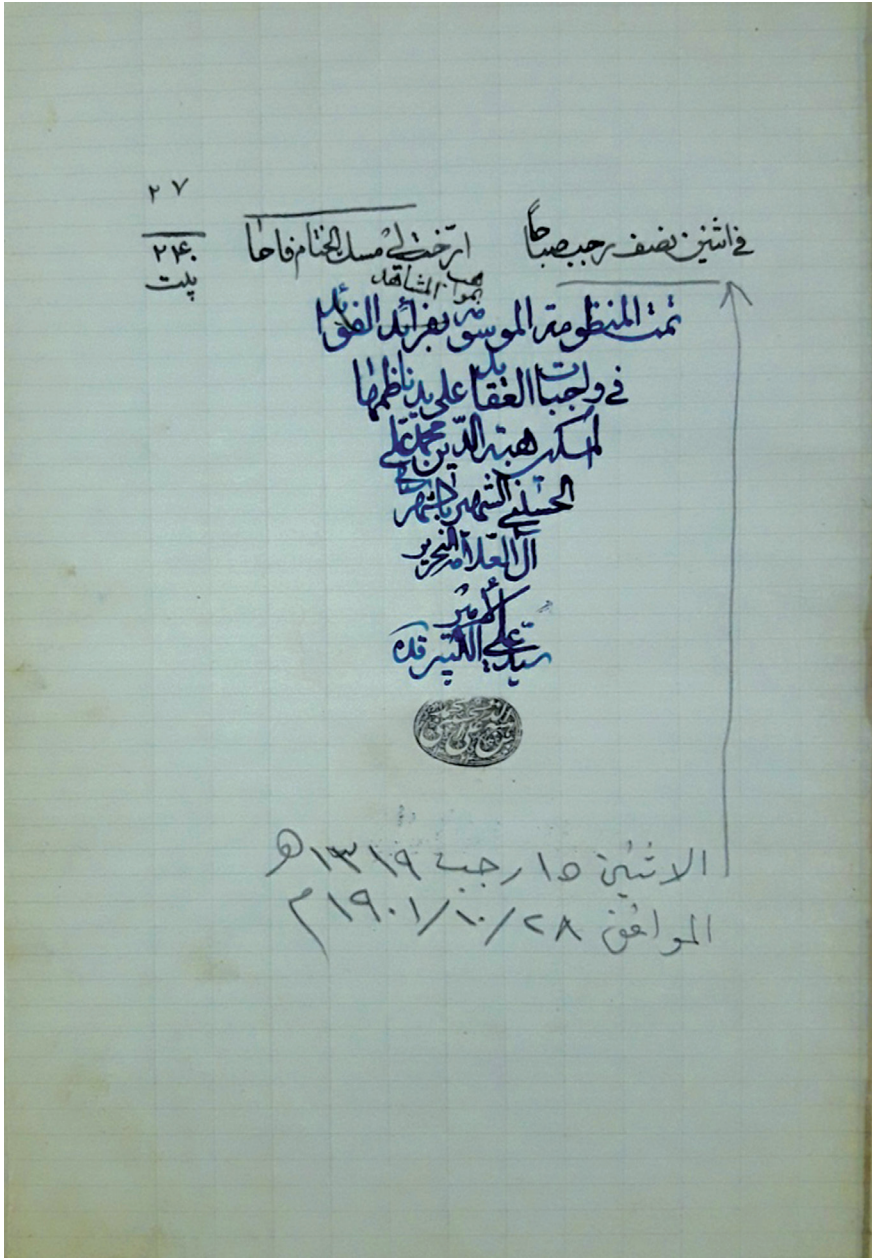 ٢٧
في اثنين نصف رجب صباحًا ارّخت لي مسك الختام فاحا
٢٤٠
بيت
بمواهب المشاهد
تمت المنظومة الموسومة بفرائد الفوائد
في واجبات العقائد على يد ناظمها
هبة الدين محمد علي
الحسيني الشهير بالشهرستاني
آل العلامة النحرير
الأمير
سيد علي الكبير قده
الاثنين ١٥ رجب ١٣١٩ هـ
الموافق ٢٨/١٠/١٩٠١ م